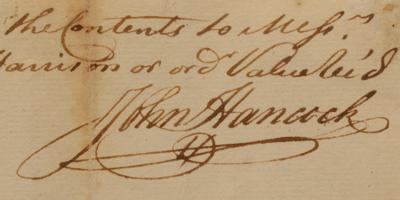 the Contents to Mess.rs
Harrison or ord.r Value Rec'd
John Hancock